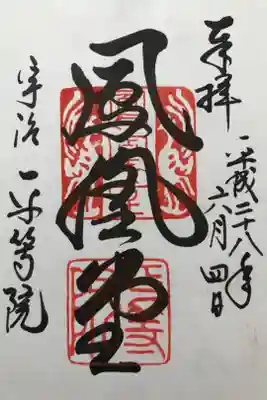 奉拝
平成二十八年
六月四日
鳳凰堂
宇治 平等院